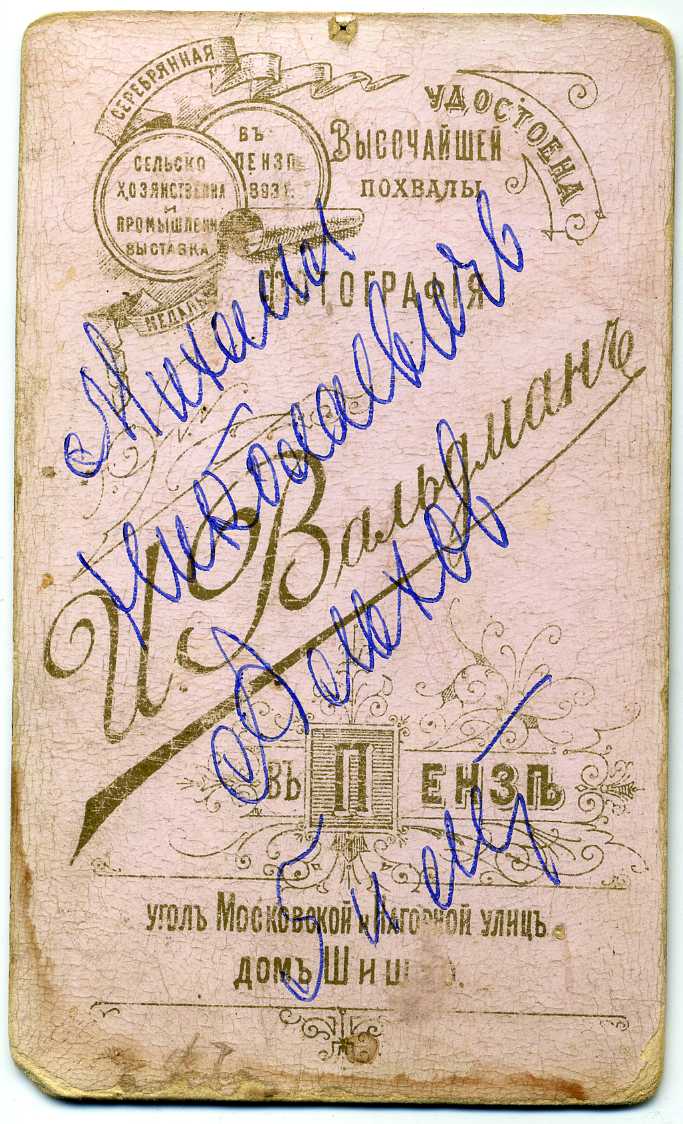 СЕРЕБРЯННАЯ
СЕЛЬСКО
ХОЗЯЙСТВЕННА
И
ПРОМЫШЛЕН
ВЫСТАВКА
ВЪ
ПЕНЗѢ
893 Г.
МЕДАЛЬ
УДОСТОЕНА
ВЫСОЧАЙШЕЙ
ПОХВАЛЫ
ФОТОГРАФІЯ
И. Вальдманъ
ВЪ ПЕНЗѢ
УГОЛЪ МОСКОВСКОЙ И НАГОРНОЙ УЛИЦЪ.
ДОМЪ
Михаил
Николаевичъ
5 лет